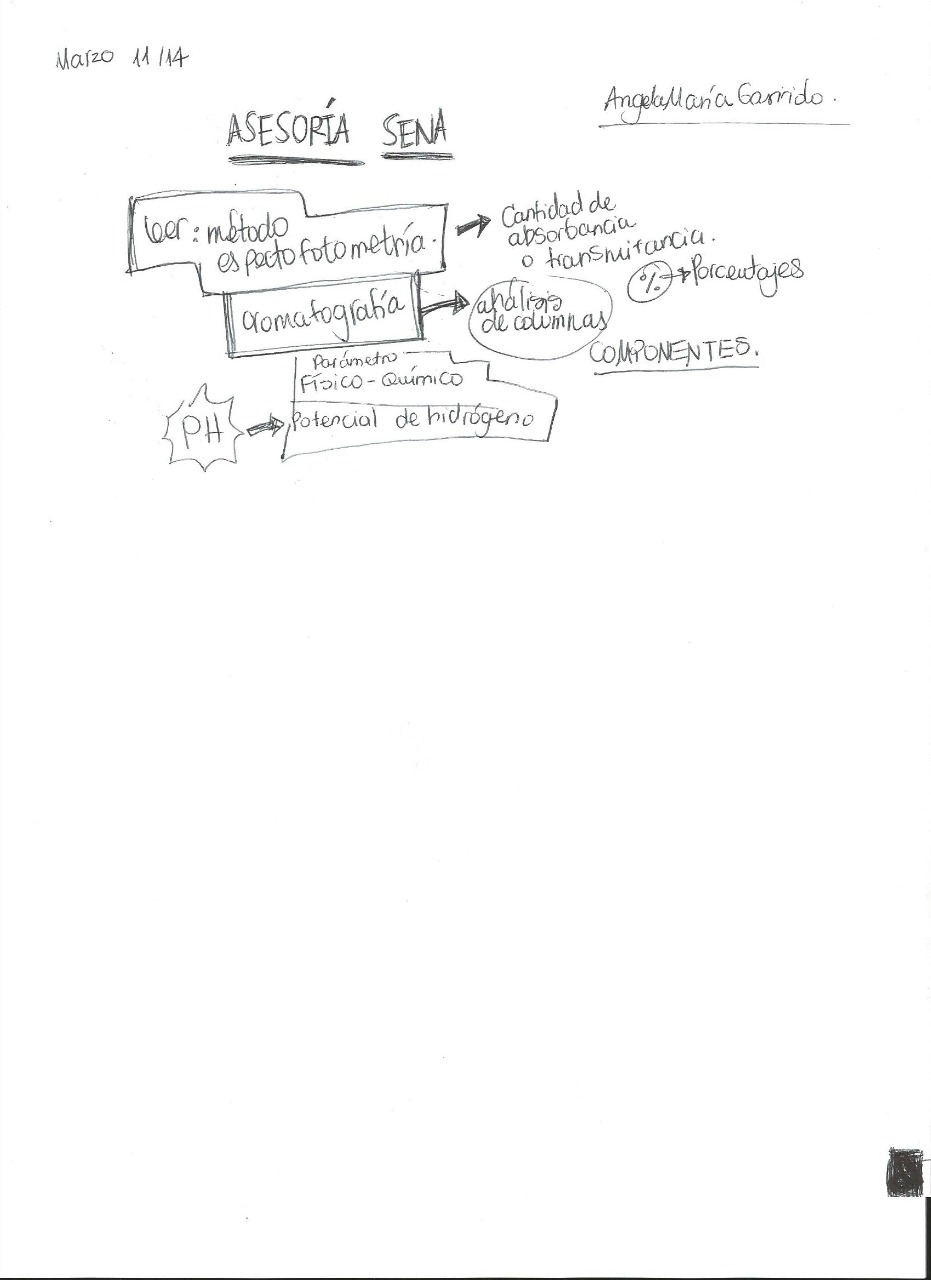 Marzo 11/14
Angela María Garrido.
ASESORÍA SENA
Leer: método
espectofotometría.
Cantidad de
absorbancia
o transmitancia.
% Porcentajes
cromatografía
análisis
de columnas
COMPONENTES.
Parámetro
Físico-Químico
PH
Potencial de hidrógeno